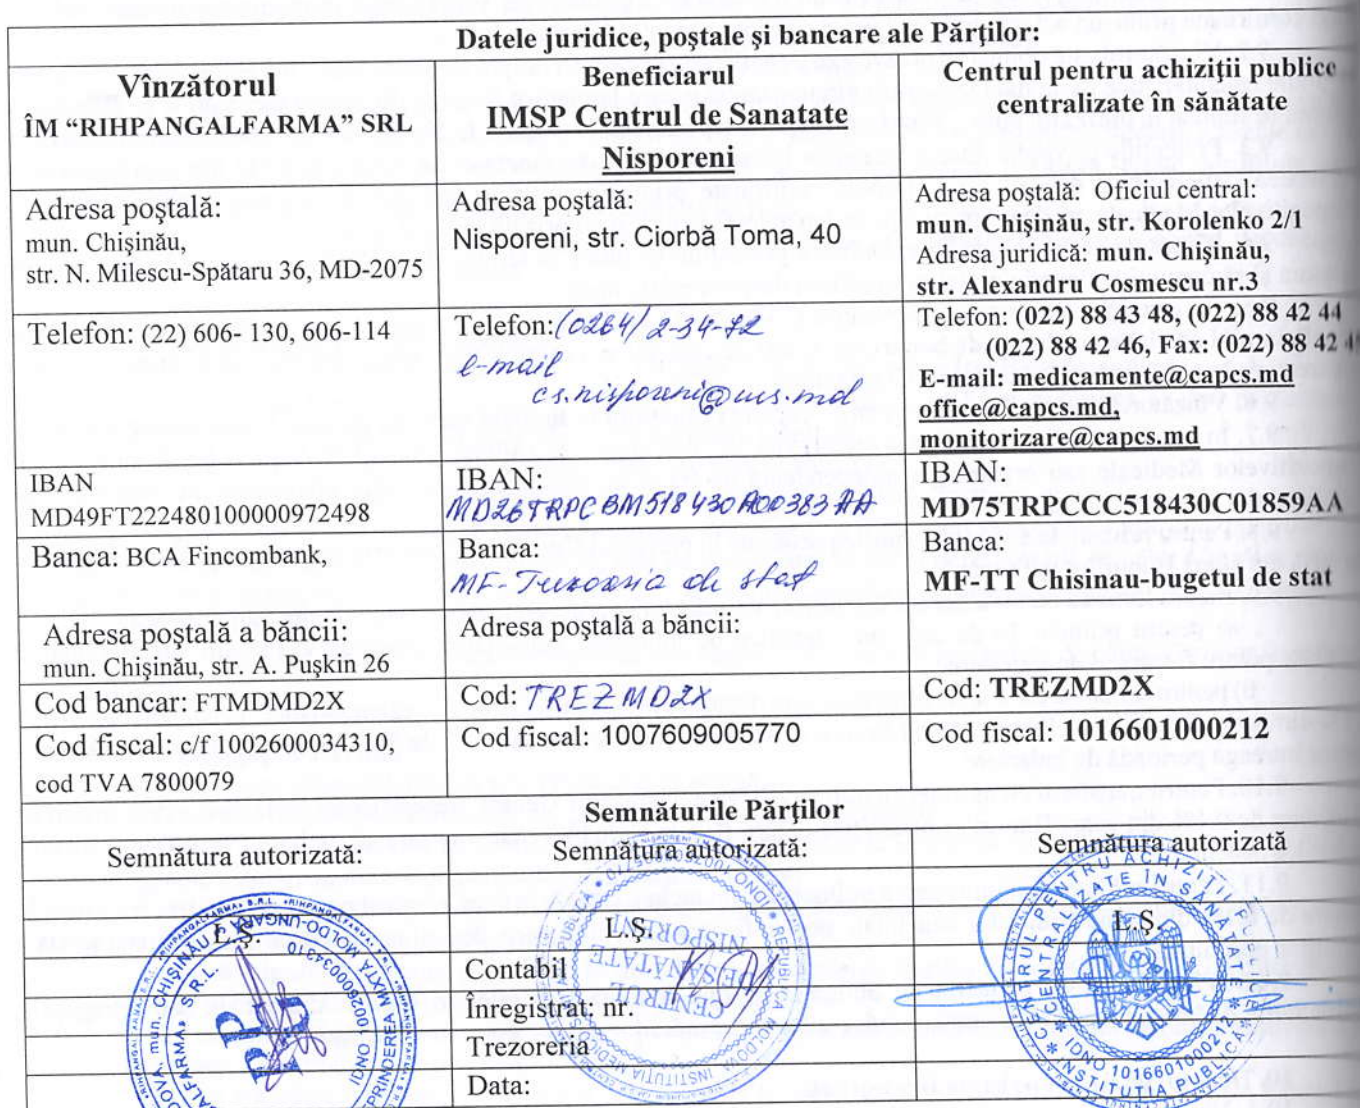 Datele juridice, poştale şi bancare ale Părţilor:
Vînzătorul
ÎM “RIHPANGALFARMA” SRL
Beneficiarul
IMSP Centrul de Sanatate
Nisporeni
Centrul pentru achiziţii publice
centralizate în sănătate
Adresa poştală:
mun. Chişinău,
str. N. Milescu-Spătaru 36, MD-2075
Adresa poştală:
Nisporeni, str. Ciorbă Toma, 40
Adresa poştală: Oficiul central:
mun. Chişinău, str. Korolenko 2/1
Adresa juridică: mun. Chişinău,
str. Alexandru Cosmescu nr.3
Telefon: (22) 606- 130, 606-114
Telefon: (0264) 2-34-72
e-mail
cs.nisporeni@ms.md
Telefon: (022) 88 43 48, (022) 88 42 44
(022) 88 42 46, Fax: (022) 88 42
E-mail: medicamente@capcs.md
office@capcs.md,
monitorizare@capcs.md
IBAN
MD49FT222480100000972498
IBAN:
MD26TRPCBM518430A00383AA
IBAN:
MD75TRPCCC518430C01859AA
Banca: BCA Fincombank,
Banca:
MF- de stat
Banca:
MF-TT Chisinau-bugetul de stat
Adresa poştală a băncii:
mun. Chişinău, str. A. Puşkin 26
Adresa poştală a băncii:
Cod bancar: FTMDMD2X
Cod: TREZMD2X
Cod: TREZMD2X
Cod fiscal: c/f 1002600034310,
cod TVA 7800079
Cod fiscal: 1007609005770
Cod fiscal: 1016601000212
Semnăturile Părţilor
Semnătura autorizată:
Semnătura autorizată:
Semnătura autorizată
L.Ş.
L.Ş.
L.Ş.
Contabil
Înregistrat: nr.
Trezoreria
Data:
mun. CHIŞINĂU
MIXTĂ MOLDO-UNGARĂ
S.R.L.
IDNO 1002600034310
CENTRUL
DE SĂNĂTATE
NISPORENI
REPUBLICA MOLDOVA
IDNO 1007609005770
CENTRUL PENTRU ACHIZIŢII PUBLICE
CENTRALIZATE ÎN SĂNĂTATE
IDNO 1016601000212
INSTITUŢIA PUBLICĂ